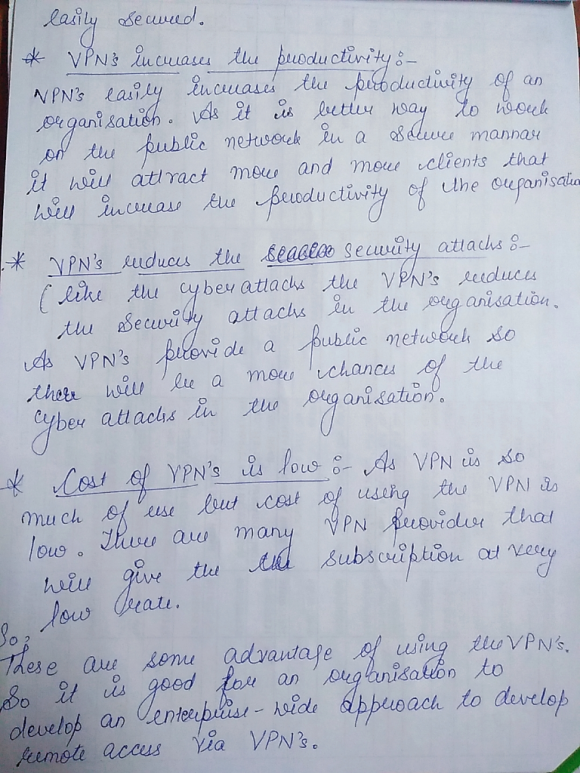 easily secured.
* VPN's increases the productivity:-
VPN's easily increases the productivity of an
organisation. As it is better way to work
on the public network in a secure mannar
it will attract more and more clients that
will increase the productivity of the organisation
* VPN's reduces the security attacks:-
(like the cyber attacks the VPN's reduces
the security attacks in the organisation.
As VPN's provide a public network so
there will be a more chances of the
cyber attacks in the organisation.
* Cost of VPN's is low:- As VPN is so
much of use but cost of using the VPN is
low. There are many VPN provider that
will give the subscription at very
low rate.
So,
These are some advantage of using the VPN's.
So it is good for an organisation to
develop an enterprise-wide approach to develop
remote access via VPN's.